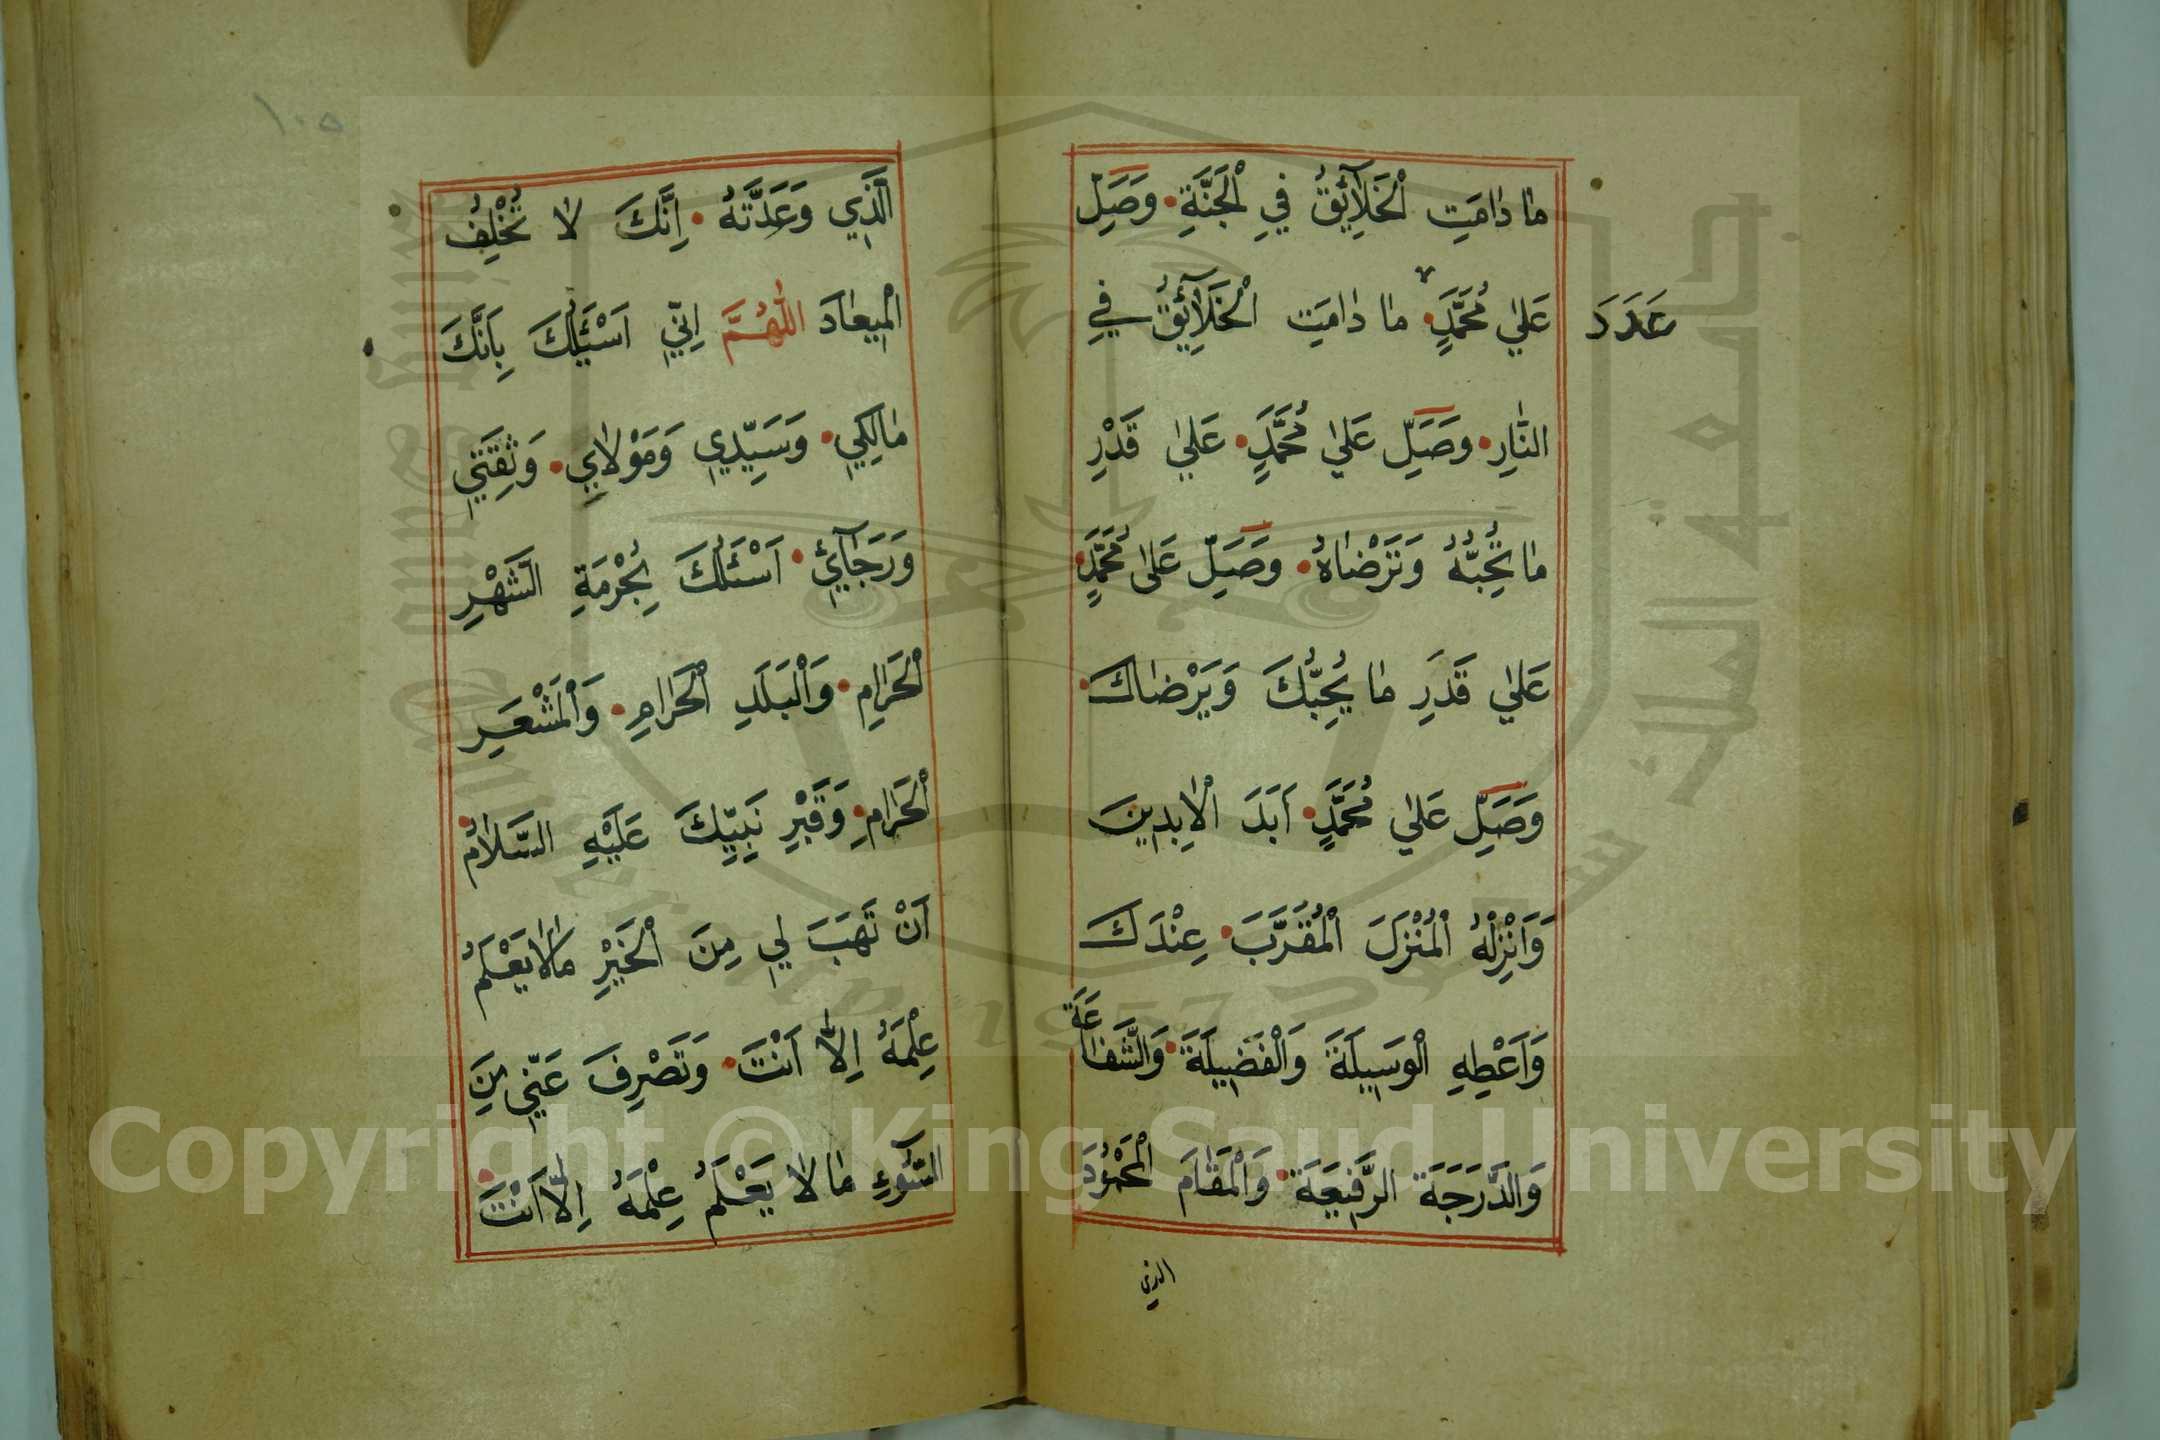 مَا دَامَتِ الْخَلَآئِقُ فِي الْجَنَّةِ وَصَلِّ
عَلَى مُحَمَّدٍ مَا دَامَتِ الْخَلَآئِقُ فِي
عَدَدَ
النَّارِ وَصَلِّ عَلَى مُحَمَّدٍ عَلَى قَدْرِ
مَا تُحِبُّهُ وَتَرْضَاهُ وَصَلِّ عَلَى مُحَمَّدٍ
عَلَى قَدَرِ مَا يُحِبُّكَ وَيَرْضَاكَ
وَصَلِّ عَلَى مُحَمَّدٍ اَبَدَ الْاٰبِدِينَ
وَاَنْزِلْهُ الْمُنْزَلَ الْمُقَرَّبَ عِنْدَكَ
وَاَعْطِهِ الْوَسِيلَةَ وَالْفَضِيلَةَ وَالشَّفَاعَةَ
وَالدَّرَجَةَ الرَّفِيعَةَ وَالْمَقَامَ الْمَحْمُودَ
الذي
١٠٥
الَّذِي وَعَدْتَهُ اِنَّكَ لَا تُخْلِفُ
الْمِيعَادَ اللّٰهُمَّ اِنِّي اَسْئَلُكَ بِاَنَّكَ
مَالِكِي وَسَيِّدِي وَمَوْلَايِ وَثِقَتِي
وَرَجَآئِي اَسْئَلُكَ بِحُرْمَةِ الشَّهْرِ
الْحَرَامِ وَالْبَلَدِ الْحَرَامِ وَالْمَشْعَرِ
الْحَرَامِ وَقَبْرِ نَبِيِّكَ عَلَيْهِ السَّلَامُ
اَنْ تَهَبَ لِي مِنَ الْخَيْرِ مَالَا يَعْلَمُ
عِلْمَهُ اِلَّا اَنْتَ وَتَصْرِفَ عَنِّي مِنَ
السُّوٓءِ مَا لَا يَعْلَمُ عِلْمَهُ اِلَّا اَنْتَ
جامعة الملك سعود
King Saud University 1957
Copyright © King Saud University